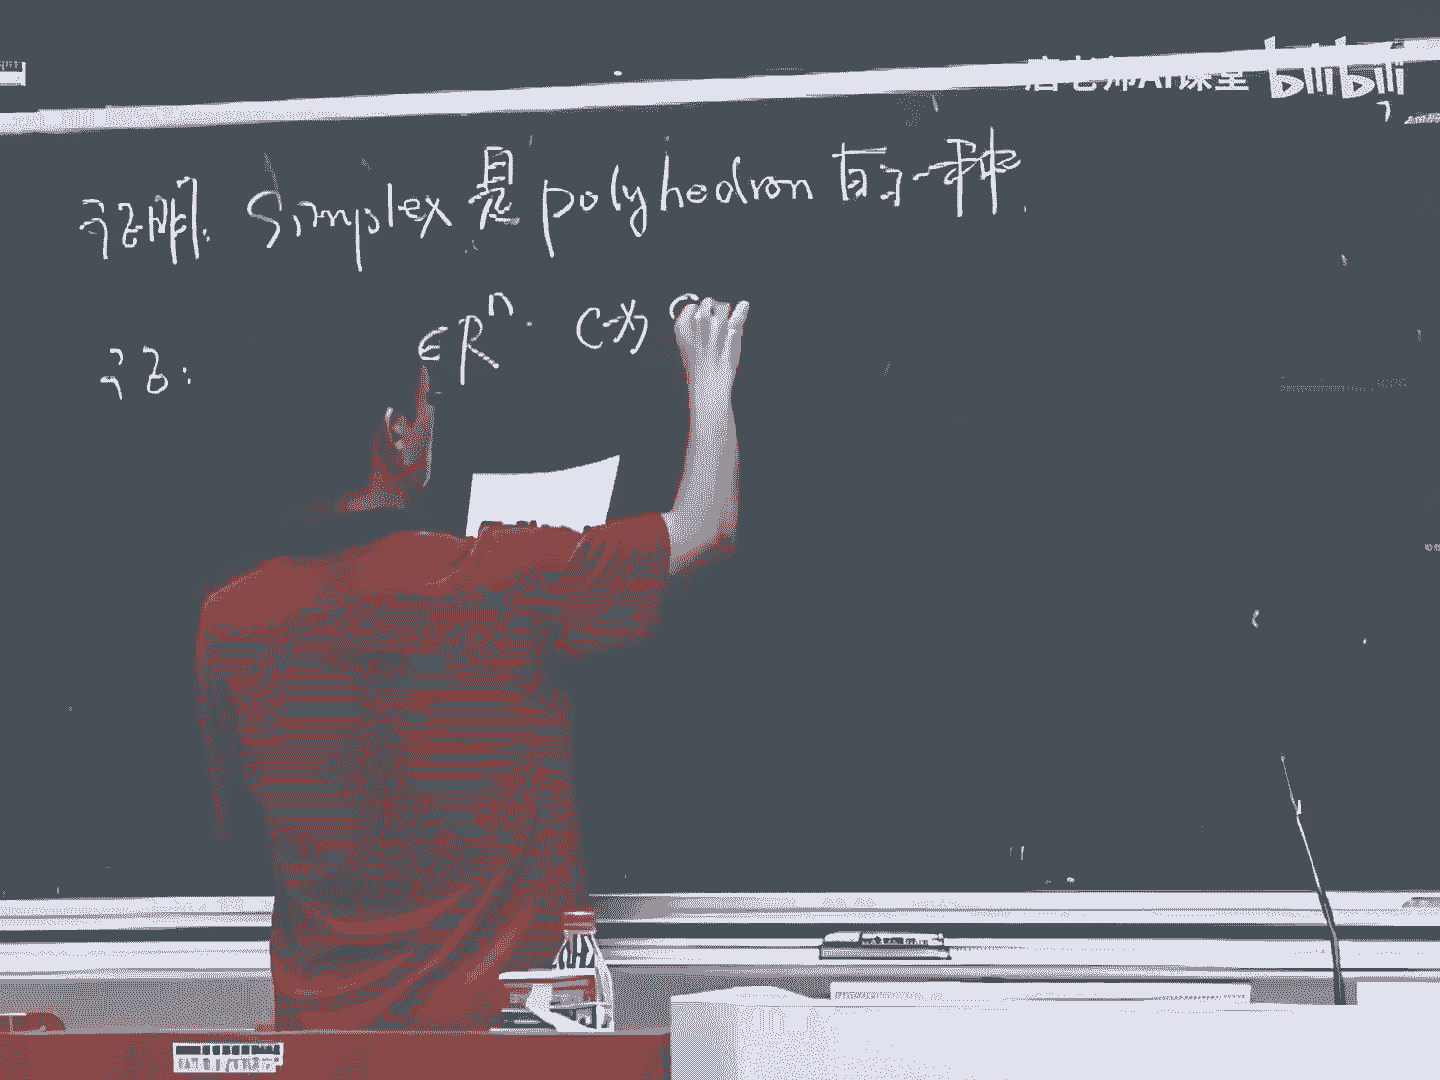 唐老师AI课堂 bilibili
证明: Simplex 是 polyhedron 的一种.
证: ∈ R^n. C为